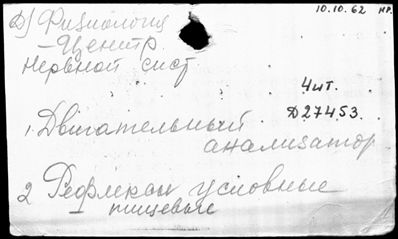 10.10.62 НР.
Д) Физиология
- Центр.
Нервной сист
4 шт.
Д27453.
1. Двигательный
анализатор
2 Рефлексы условные
пищевые